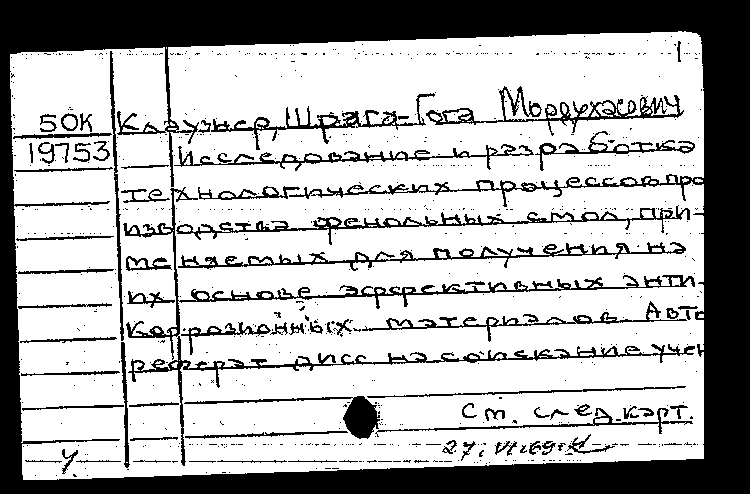 1
50К Клаузнер, Шрага-Гога Мордухаевич
19753 Исследование и разработка
технологических процессов про
изводства фенольных смол, при-
меняемых для получения на
их основе эффективных анти-
коррозионных материалов. Авто
реферат дисс на соискание учен
См. след. карт.
У 27.VI.69.